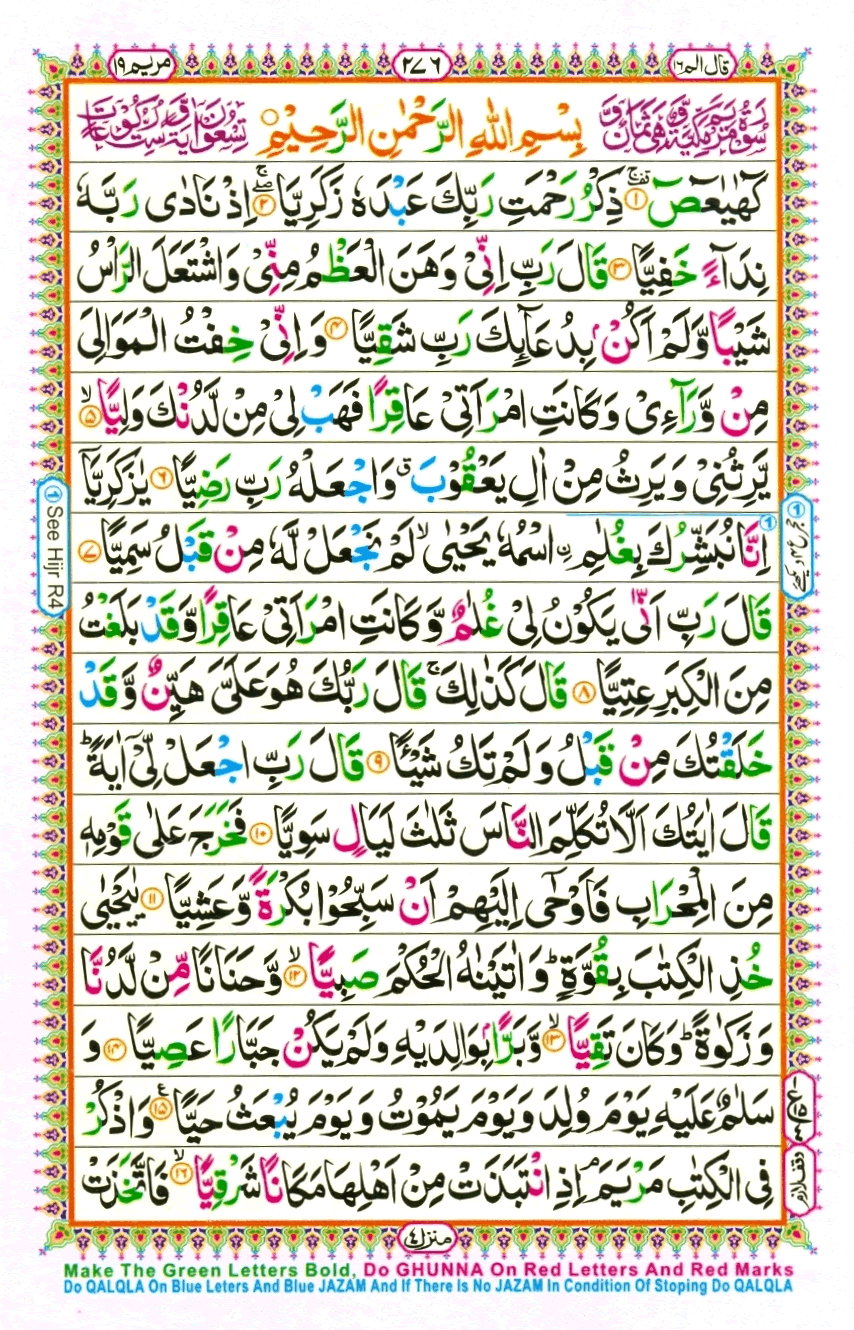 قال الم ١٦
٢٧٦
مريم ١٩
سُوْرَةُ مَرْيَمَ مَكِّيَّةٌ وَّهِیَ ثَمَانٌ وَّ بِسْمِ اللهِ الرَّحْمٰنِ الرَّحِیْمِ تِسْعُوْنَ اٰیَةً وَّسِتُّ رُكُوْعَاتٍ
كٓهٰیٰعٓصٓ ۚ۟ ﴿۱﴾ ذِكْرُ رَحْمَتِ رَبِّكَ عَبْدَهٗ زَكَرِیَّا ۖۚ ﴿۲﴾ اِذْ نَادٰی رَبَّهٗ
نِدَآءً خَفِیًّا ﴿۳﴾ قَالَ رَبِّ اِنِّیْ وَهَنَ الْعَظْمُ مِنِّیْ وَاشْتَعَلَ الرَّاْسُ
شَیْبًا وَّلَمْ اَكُنْۢ بِدُعَآىِٕكَ رَبِّ شَقِیًّا ﴿۴﴾ وَاِنِّیْ خِفْتُ الْمَوَالِیَ
مِنْ وَّرَآءِیْ وَكَانَتِ امْرَاَتِیْ عَاقِرًا فَهَبْ لِیْ مِنْ لَّدُنْكَ وَلِیًّا ۙ﴿۵﴾
یَّرِثُنِیْ وَیَرِثُ مِنْ اٰلِ یَعْقُوْبَ ۗ وَاجْعَلْهُ رَبِّ رَضِیًّا ﴿۶﴾ یٰزَكَرِیَّاۤ
اِنَّا نُبَشِّرُكَ بِغُلٰمِ ِ۟اسْمُهٗ یَحْیٰی ۙ لَمْ نَجْعَلْ لَّهٗ مِنْ قَبْلُ سَمِیًّا ﴿۷﴾
قَالَ رَبِّ اَنّٰی یَكُوْنُ لِیْ غُلٰمٌ وَّكَانَتِ امْرَاَتِیْ عَاقِرًا وَّقَدْ بَلَغْتُ
مِنَ الْكِبَرِ عِتِیًّا ﴿۸﴾ قَالَ كَذٰلِكَ ۚ قَالَ رَبُّكَ هُوَ عَلَیَّ هَیِّنٌ وَّقَدْ
خَلَقْتُكَ مِنْ قَبْلُ وَلَمْ تَكُ شَیْـًٔا ﴿۹﴾ قَالَ رَبِّ اجْعَلْ لِّیْۤ اٰیَةً ؕ
قَالَ اٰیَتُكَ اَلَّا تُكَلِّمَ النَّاسَ ثَلٰثَ لَیَالٍ سَوِیًّا ﴿۱۰﴾ فَخَرَجَ عَلٰی قَوْمِهٖ
مِنَ الْمِحْرَابِ فَاَوْحٰۤی اِلَیْهِمْ اَنْ سَبِّحُوْا بُكْرَةً وَّعَشِیًّا ﴿۱۱﴾ یٰیَحْیٰی
خُذِ الْكِتٰبَ بِقُوَّةٍ ؕ وَاٰتَیْنٰهُ الْحُكْمَ صَبِیًّا ۙ﴿۱۲﴾ وَّحَنَانًا مِّنْ لَّدُنَّا
وَزَكٰوةً ؕ وَكَانَ تَقِیًّا ۙ﴿۱۳﴾ وَّبَرًّۢا بِوَالِدَیْهِ وَلَمْ یَكُنْ جَبَّارًا عَصِیًّا ﴿۱۴﴾ وَ
سَلٰمٌ عَلَیْهِ یَوْمَ وُلِدَ وَیَوْمَ یَمُوْتُ وَیَوْمَ یُبْعَثُ حَیًّا ﴿۱۵﴾ۧ وَاذْكُرْ
فِی الْكِتٰبِ مَرْیَمَ ۘ اِذِ انْتَبَذَتْ مِنْ اَهْلِهَا مَكَانًا شَرْقِیًّا ۙ﴿۱۶﴾ فَاتَّخَذَتْ
① See Hijr R4
وقف لازم
منزل ٤
Make The Green Letters Bold, Do GHUNNA On Red Letters And Red Marks
Do QALQLA On Blue Leters And Blue JAZAM And If There Is No JAZAM In Condition Of Stoping Do QALQLA